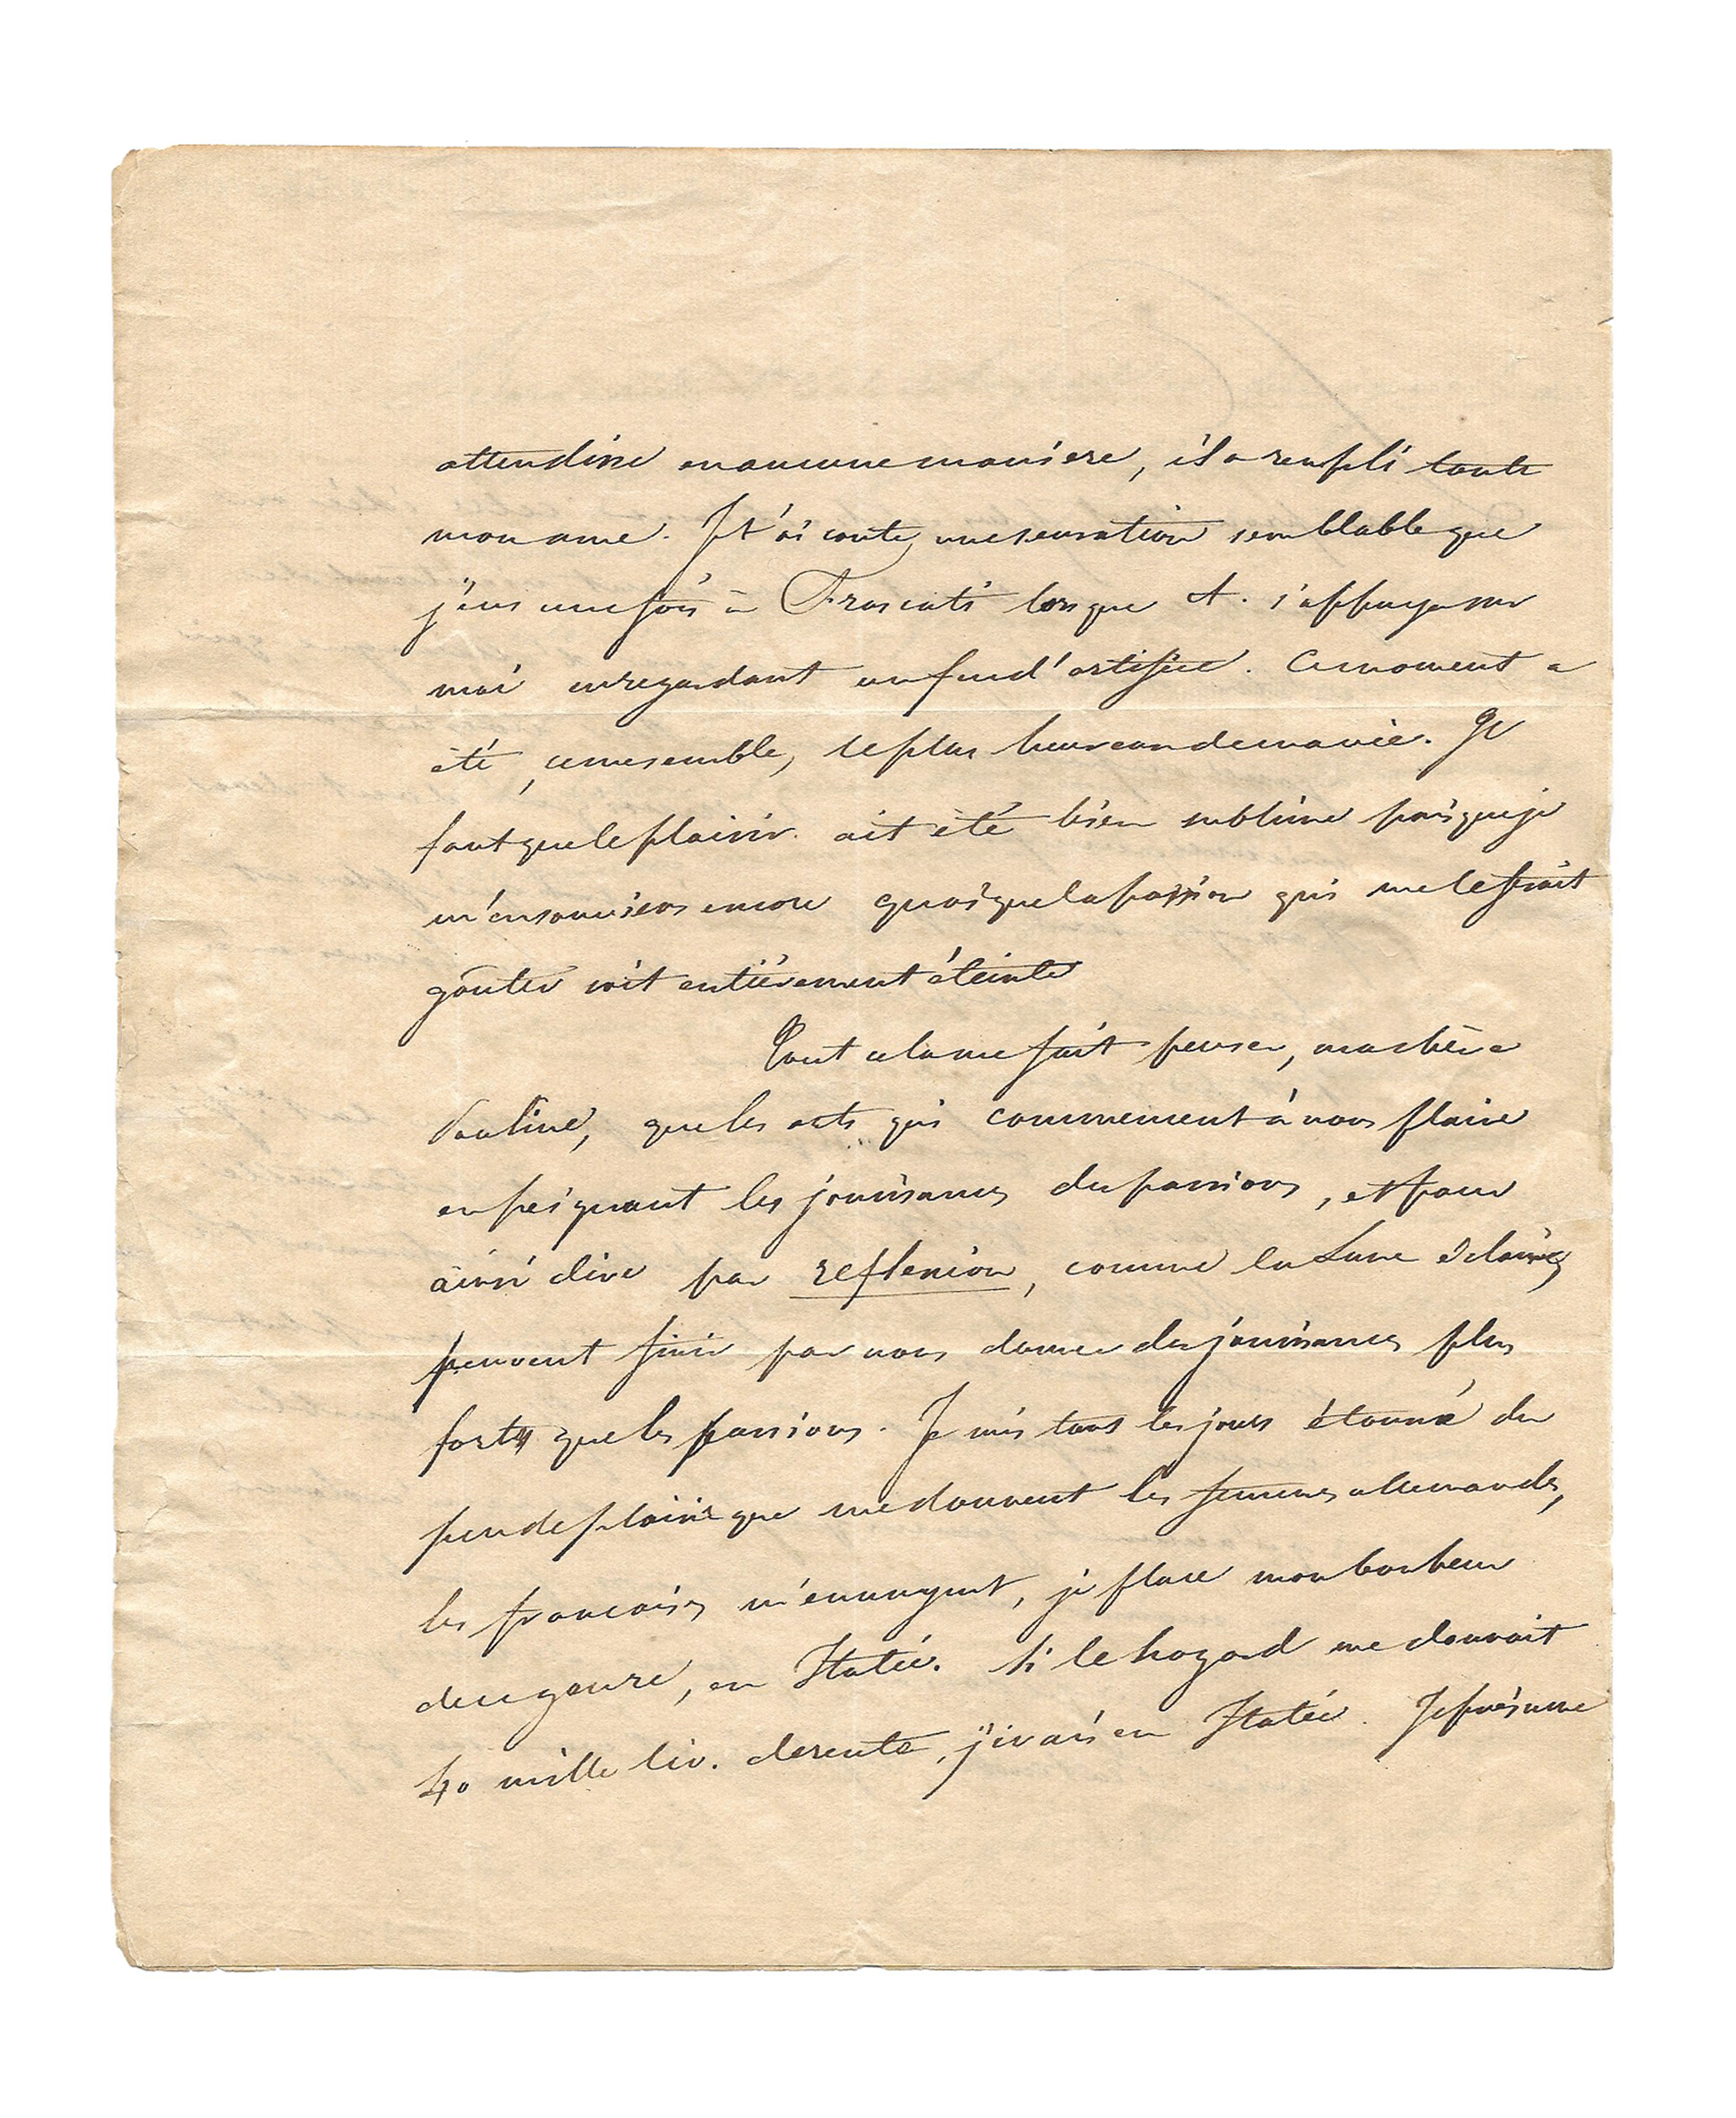 attendrir en aucune maniere, il a rempli toute
mon ame. Je t'ai conté une sensation semblable que
j'eus une fois à Frascati lorsque A. s'appuya sur
moi en regardant un feu d'artifice. Ce moment a
été, ce me semble, le plus heureux de ma vie. Il
faut que le plaisir ait été bien sublime puisque je
m'en souviens encore quoique la passion qui me le fesait
goûter soit entièrement éteinte
Tout cela me fait penser, ma chère
Pauline, que les arts qui commencent à nous plaire
en peignant les jouissances des passions, et pour
ainsi dire par reflexion, comme la Lune éclaire,
peuvent finir par nous donner des jouissances plus
fortes que les passions. Je suis tous les jours étonné du
peu de plaisir que me donnent les femmes allemandes,
les francaises m'ennuyent, je place mon bonheur
de ce genre, en Italie. Si le hazard me donnait
40 mille liv. de rente, j'irais en Italie. Je présume